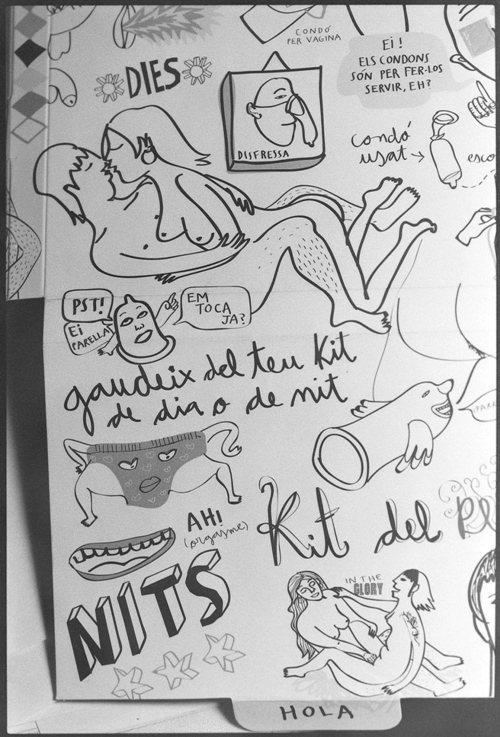 CONDÓ
PER VAGINA
Ei!
ELS CONDONS
SÓN PER FER-LOS
SERVIR, EH?
DIES
DISFRESSA
condó
usat
PST!
Ei
PARELLA
EM
TOCA
JA?
gaudeix del teu Kit
de dia o de nit
AH!
(orgasme)
Kit del
NITS
IN THE
GLORY
HOLA